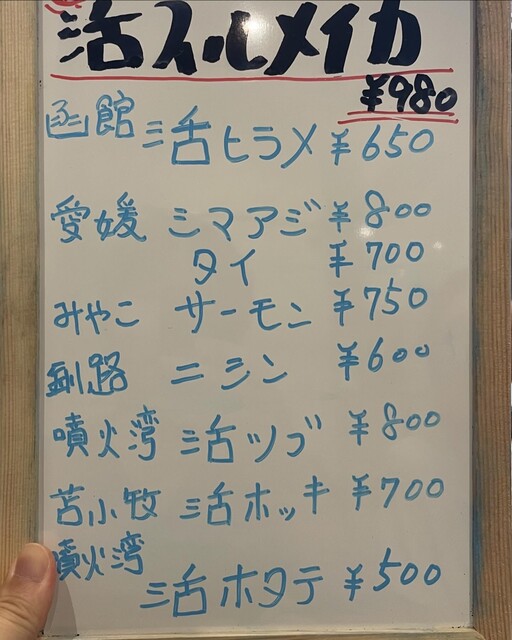 活スルメイカ
¥980
函館 活ヒラメ ¥650
愛媛 シマアジ ¥800
タイ ¥700
みやこ サーモン ¥750
釧路 ニシン ¥600
噴火湾 活ツブ ¥800
苫小牧 活ホッキ ¥700
噴火湾 活ホタテ ¥500